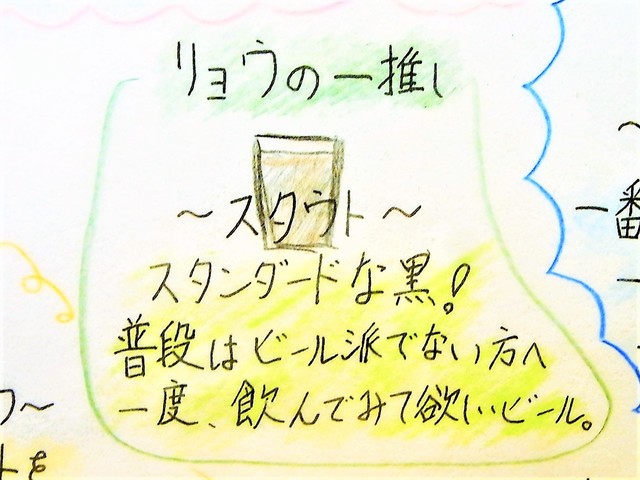 リョウの一推し
～スタウト～
スタンダードな黒!
普段はビール派でない方へ
一度、飲んでみて欲しいビール。
～
一番
一
つ～
トを